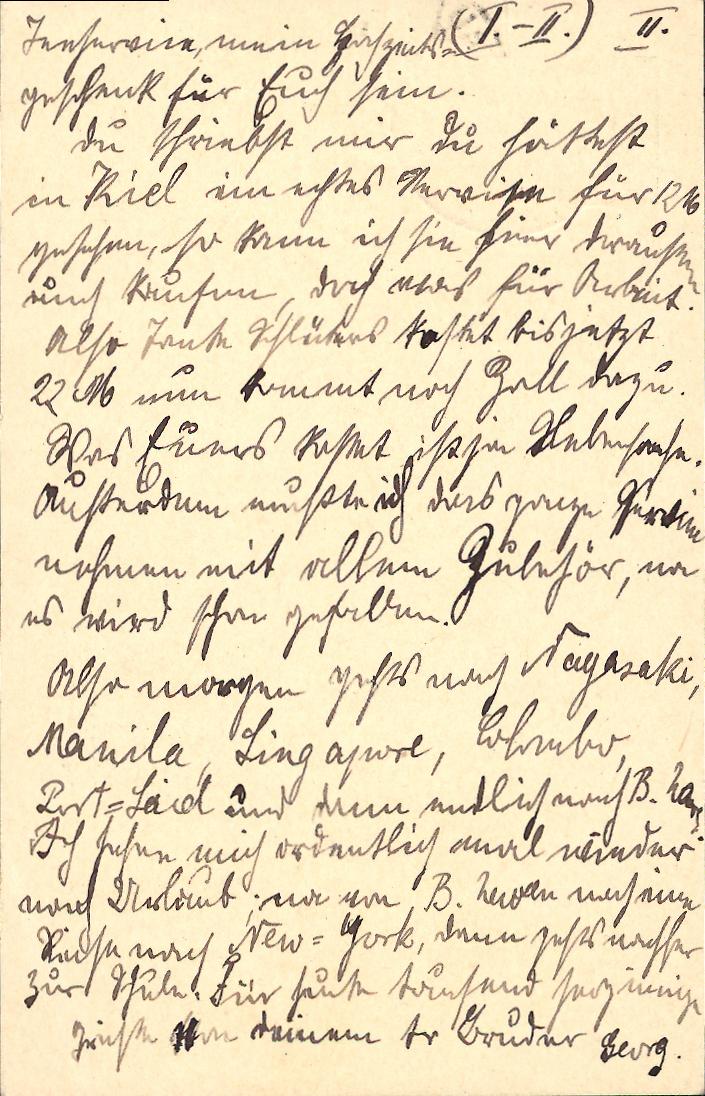 (I.-II.) II.
Teeservice, mein Hochzeits=
geschenk für Euch sein.
Du schriebst mir Du hättest
in Kiel ein echtes Service für 12 M
gesehen, so kann ich sie hier draußen
auch kaufen, doch was für Arbeit.
Also Tante Schlüters kostet bis jetzt
22 M nun kommt noch Zoll dazu.
Was Euers kostet ist ja Nebensache.
Außerdem mußte ich das ganze Service
nehmen mit allem Zubehör, na
es wird schon gefallen.
Also morgen gehts nach Nagasaki,
Manila, Singapore, Colombo,
Port=Said und dann endlich nach B. haven.
Ich sehne mich ordentlich mal wieder
nach Urlaub, na von B. haven noch eine
Reise nach New=York, dann gehts nachher
zur Schule. Für heute tausend herzinnige
Grüße von deinem tr Bruder Georg.